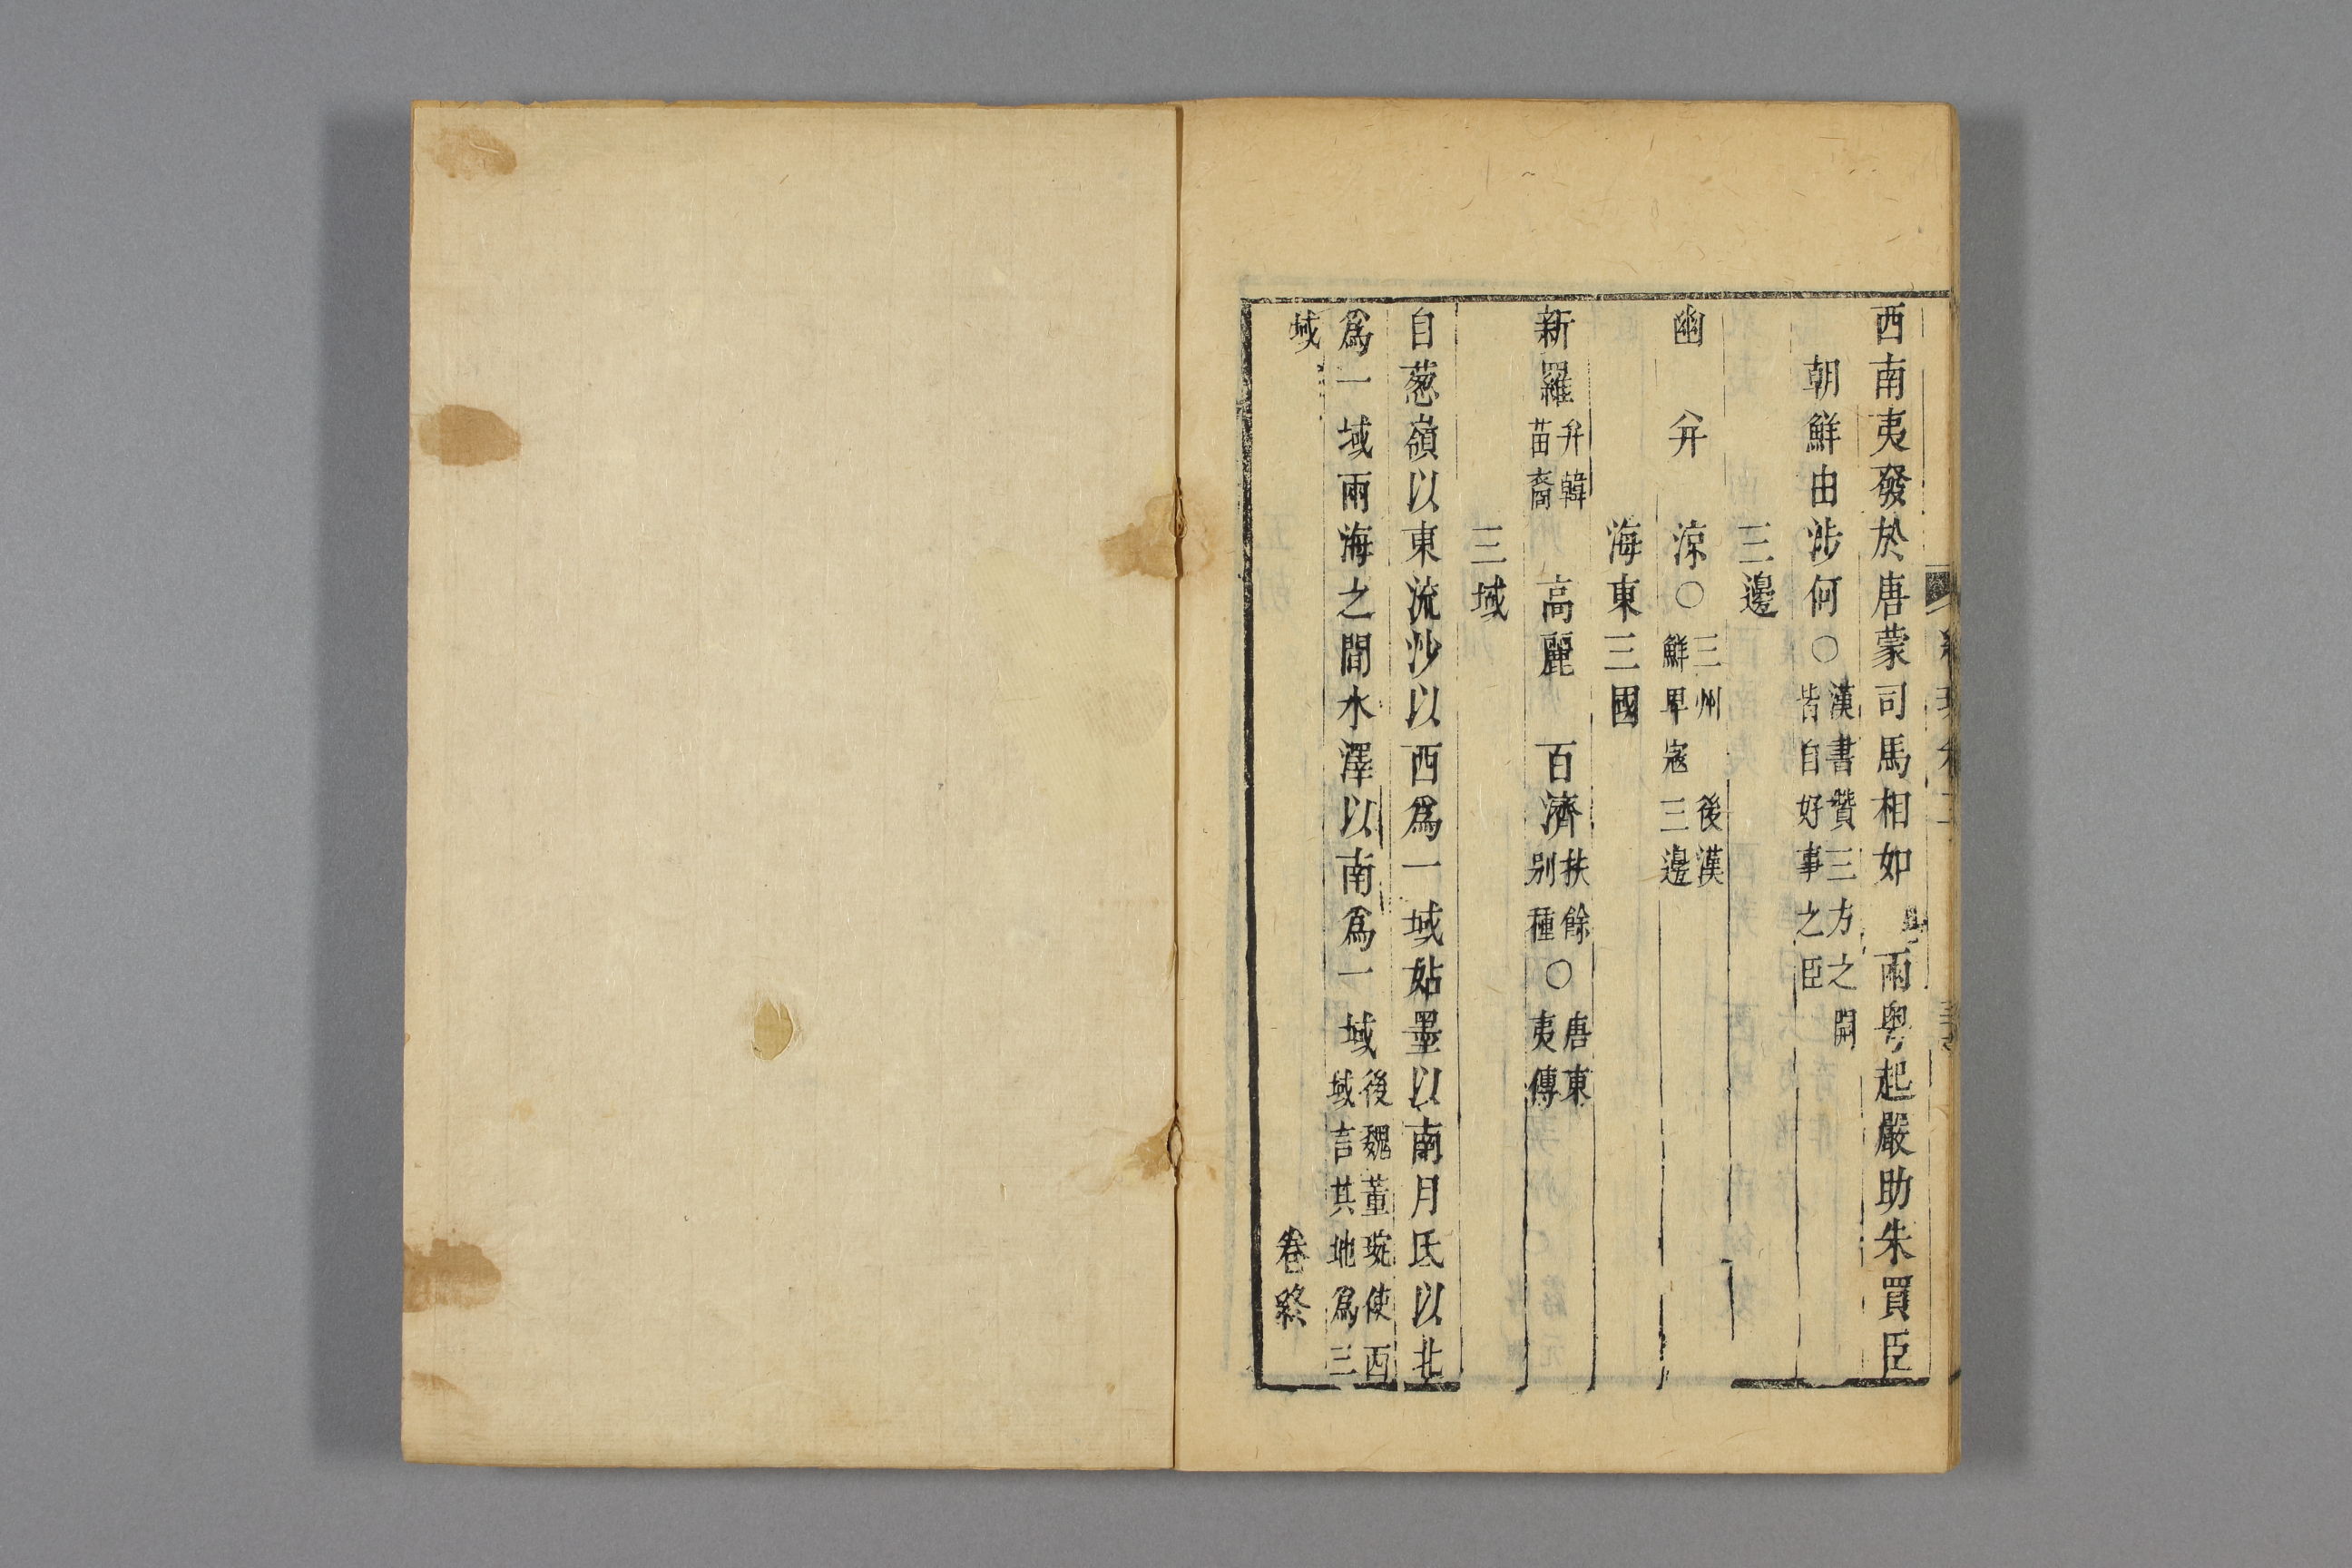 西南夷發於唐蒙司馬相如　兩粤起嚴助朱買臣
朝鮮由涉何○漢書贊三方之開
皆自好事之臣
三邊
幽　幷　涼○三州　後漢
鮮卑寇三邊
海東三國
新羅弁韓
苗裔　高麗　百濟扶餘
別種○唐東
夷傳
三域
自葱嶺以東流沙以西爲一域姑墨以南月氏以北
爲一域兩海之間水澤以南爲一域後魏董琬使西
域言其地爲三
域
卷終